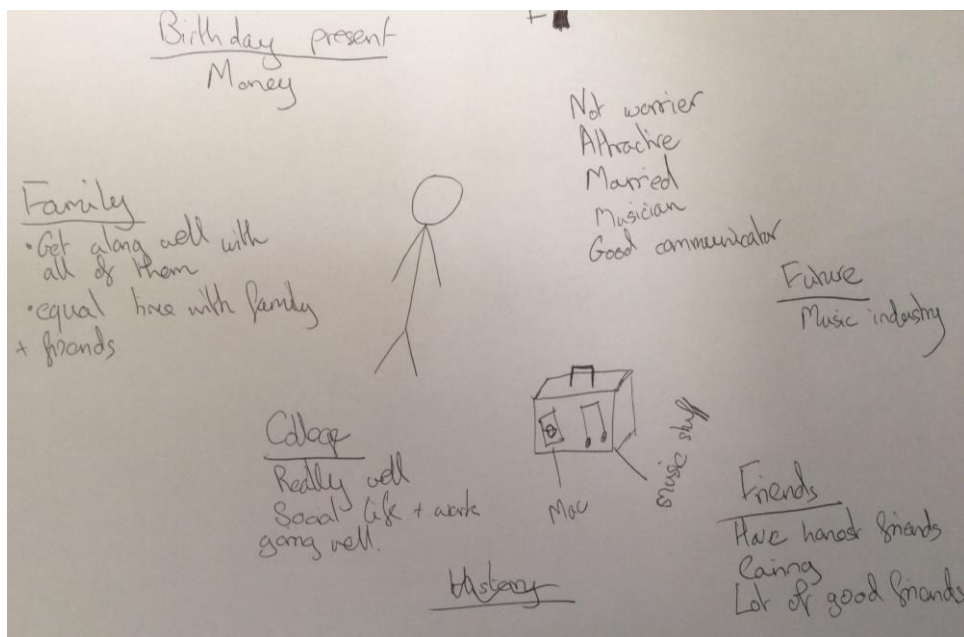 Birthday present
Money
Not worrier
Attractive
Married
Musician
Good communicator
Family
• Get along well with
all of them
• equal time with family
+ friends
Future
Music industry
College
Really well
Social life + work
going well.
Mac
Music stuff
Friends
Have honest friends
Caring
Lot of good friends